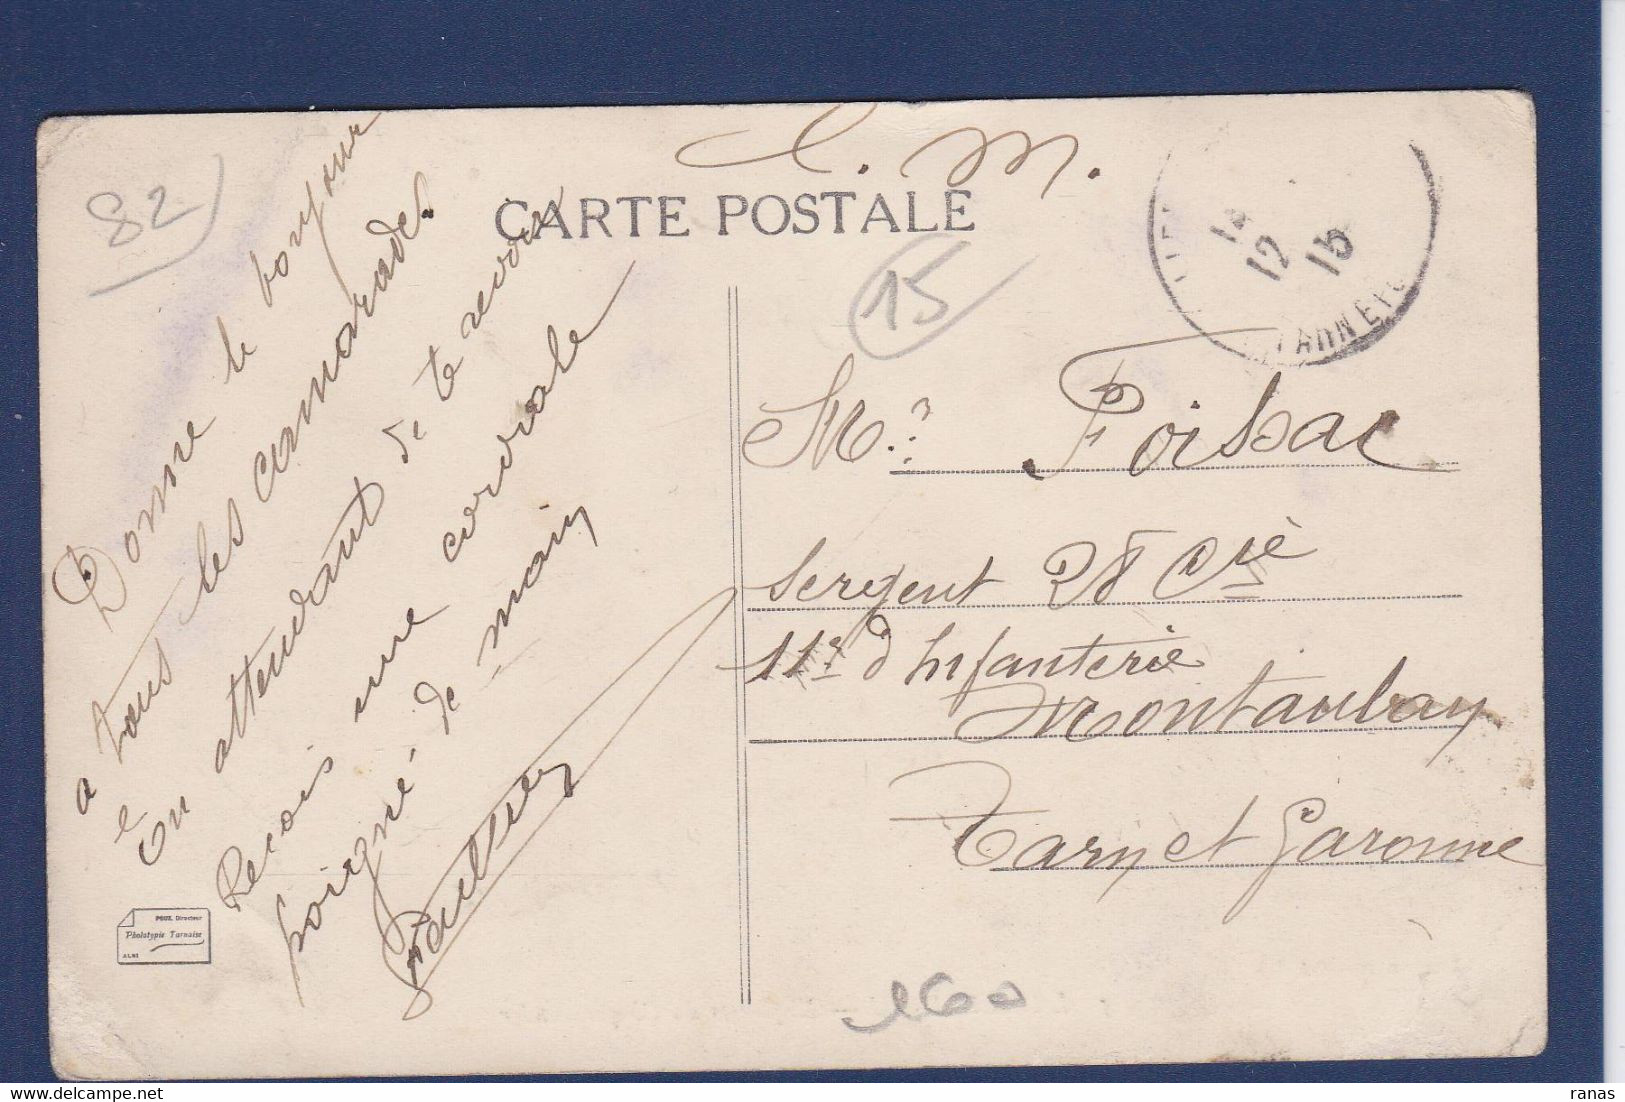 C. M.
CARTE POSTALE
82
15
12
15
TARN ET G
Donne le bonjour
a tous les camarades.
En attendant de te revoir
Recois une cordiale
poigné de main
Mr Foissac
Sergent 28 Cie
11e d'Infanterie
Montauban
Tarn et Garonne
POUX, Directeur
Phototypie Tarnaise
ALBI
160
ranas